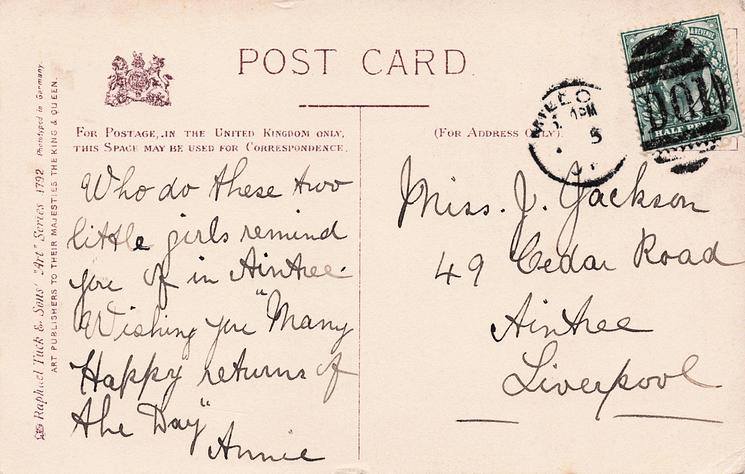 POST CARD
FOR POSTAGE, IN THE UNITED KINGDOM ONLY,
THIS SPACE MAY BE USED FOR CORRESPONDENCE.
(FOR ADDRESS ONLY).
Raphael Tuck & Sons' "Art" Series 1792 Phototyped in Germany.
ART PUBLISHERS TO THEIR MAJESTIES THE KING & QUEEN.
Who do these two
little girls remind
you of in Aintree.
Wishing you "Many
Happy returns of
the Day"
Annie
& REVENUE
HALF
Miss. J. Jackson
49 Cedar Road
Aintree
Liverpool